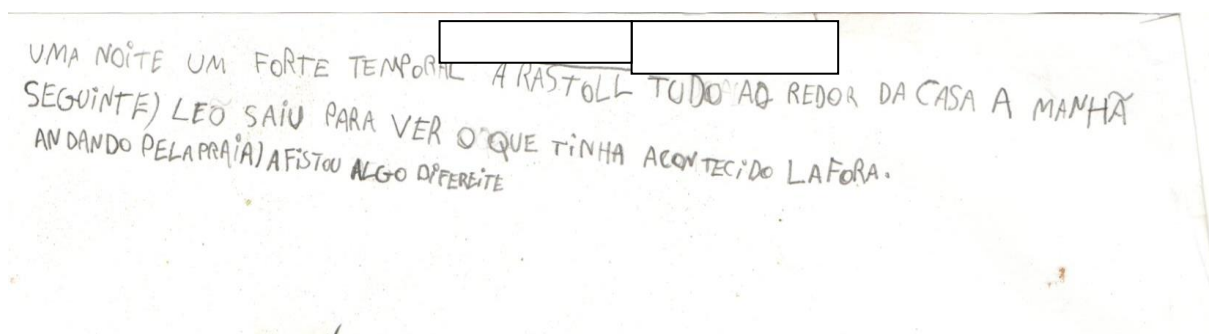 UMA NOITE UM FORTE TEMPORAL ARASTOLL TUDO AO REDOR DA CASA A MANHÃ
SEGUINTE) LEO SAIU PARA VER O QUE TINHA ACONTECIDO LAFORA.
ANDANDO PELAPRAIA) AFISTOU ALGO DIFEREITE